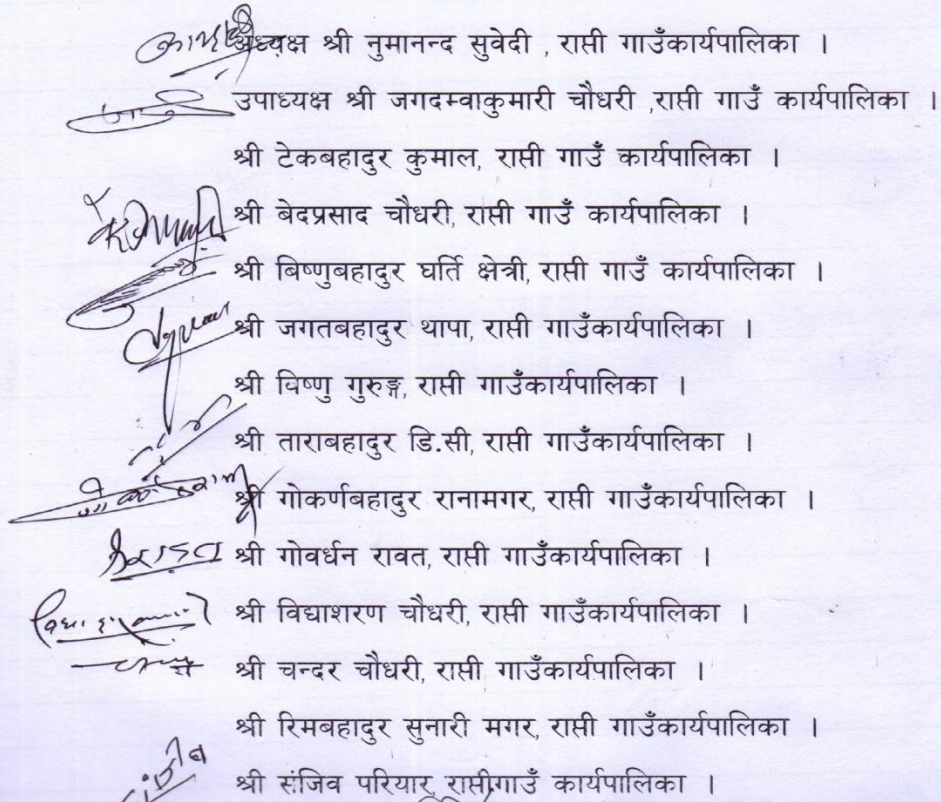 अध्यक्ष श्री नुमानन्द सुवेदी , राप्ती गाउँकार्यपालिका ।
उपाध्यक्ष श्री जगदम्वाकुमारी चौधरी ,राप्ती गाउँ कार्यपालिका ।
श्री टेकबहादुर कुमाल, राप्ती गाउँ कार्यपालिका ।
श्री बेदप्रसाद चौधरी, राप्ती गाउँ कार्यपालिका ।
श्री बिष्णुबहादुर घर्ति क्षेत्री, राप्ती गाउँ कार्यपालिका ।
श्री जगतबहादुर थापा, राप्ती गाउँकार्यपालिका ।
श्री विष्णु गुरुङ्ग, राप्ती गाउँकार्यपालिका ।
श्री ताराबहादुर डि.सी, राप्ती गाउँकार्यपालिका ।
श्री गोकर्णबहादुर रानामगर, राप्ती गाउँकार्यपालिका ।
श्री गोवर्धन रावत, राप्ती गाउँकार्यपालिका ।
श्री विद्याशरण चौधरी, राप्ती गाउँकार्यपालिका ।
श्री चन्दर चौधरी, राप्ती गाउँकार्यपालिका ।
श्री रिमबहादुर सुनारी मगर, राप्ती गाउँकार्यपालिका ।
श्री संजिव परियार, राप्तीगाउँ कार्यपालिका ।